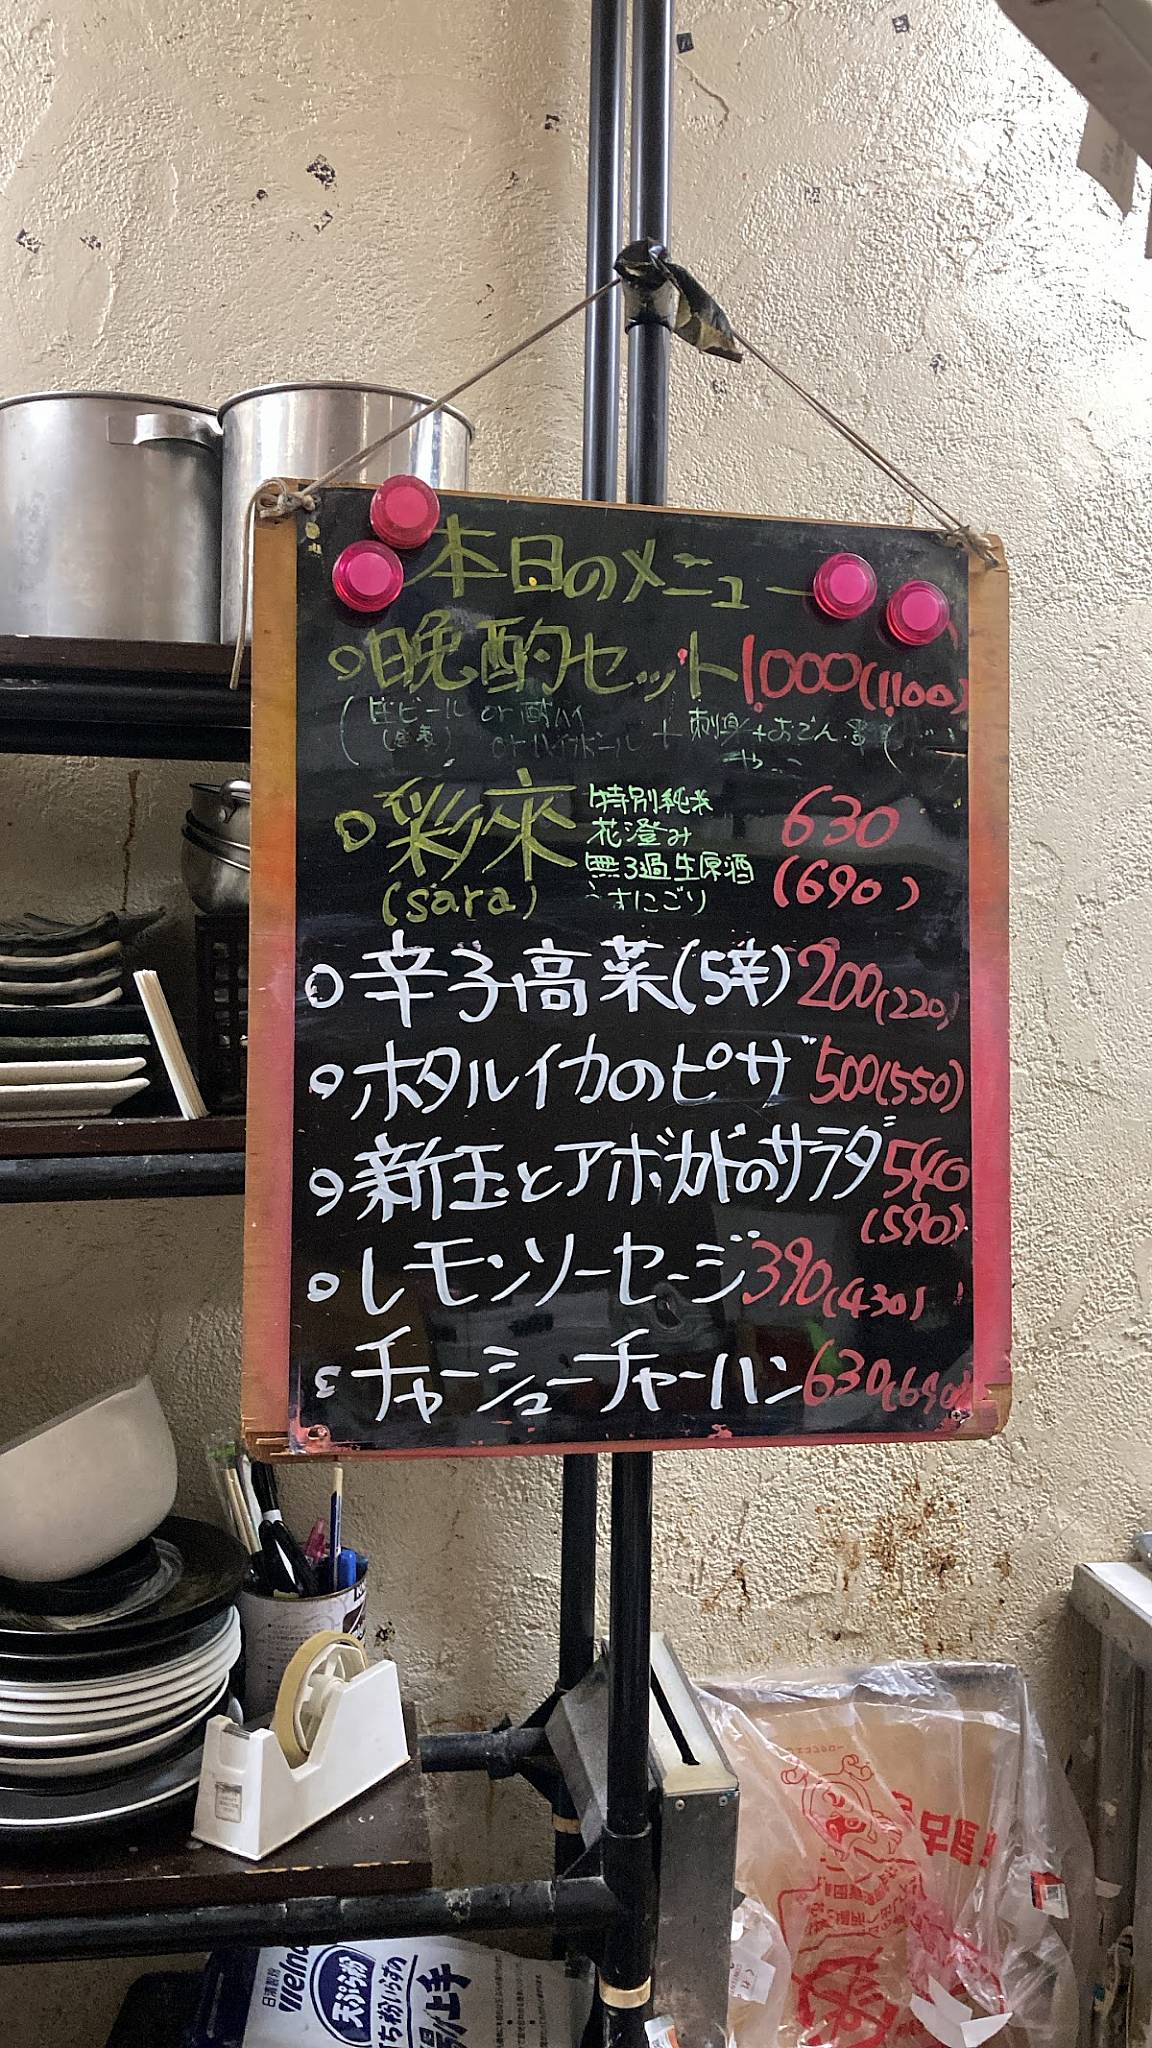 本日のメニュー
晩酌セット 1,000(1,100)
(生ビール or 酎ハイ
or ハイボール + 刺身+おでん
彩來 特別純米 630
花澄み
無ろ過生原酒 (690)
(sara) うすにごり
辛子高菜(5辛) 200(220)
ホタルイカのピザ 500(550)
新玉とアボカドのサラダ 540
(590)
レモンソーセージ 390(430)
チャーシューチャーハン 630(690)
日清製粉
Welna
天ぷら粉
打ち粉いらずの
上手